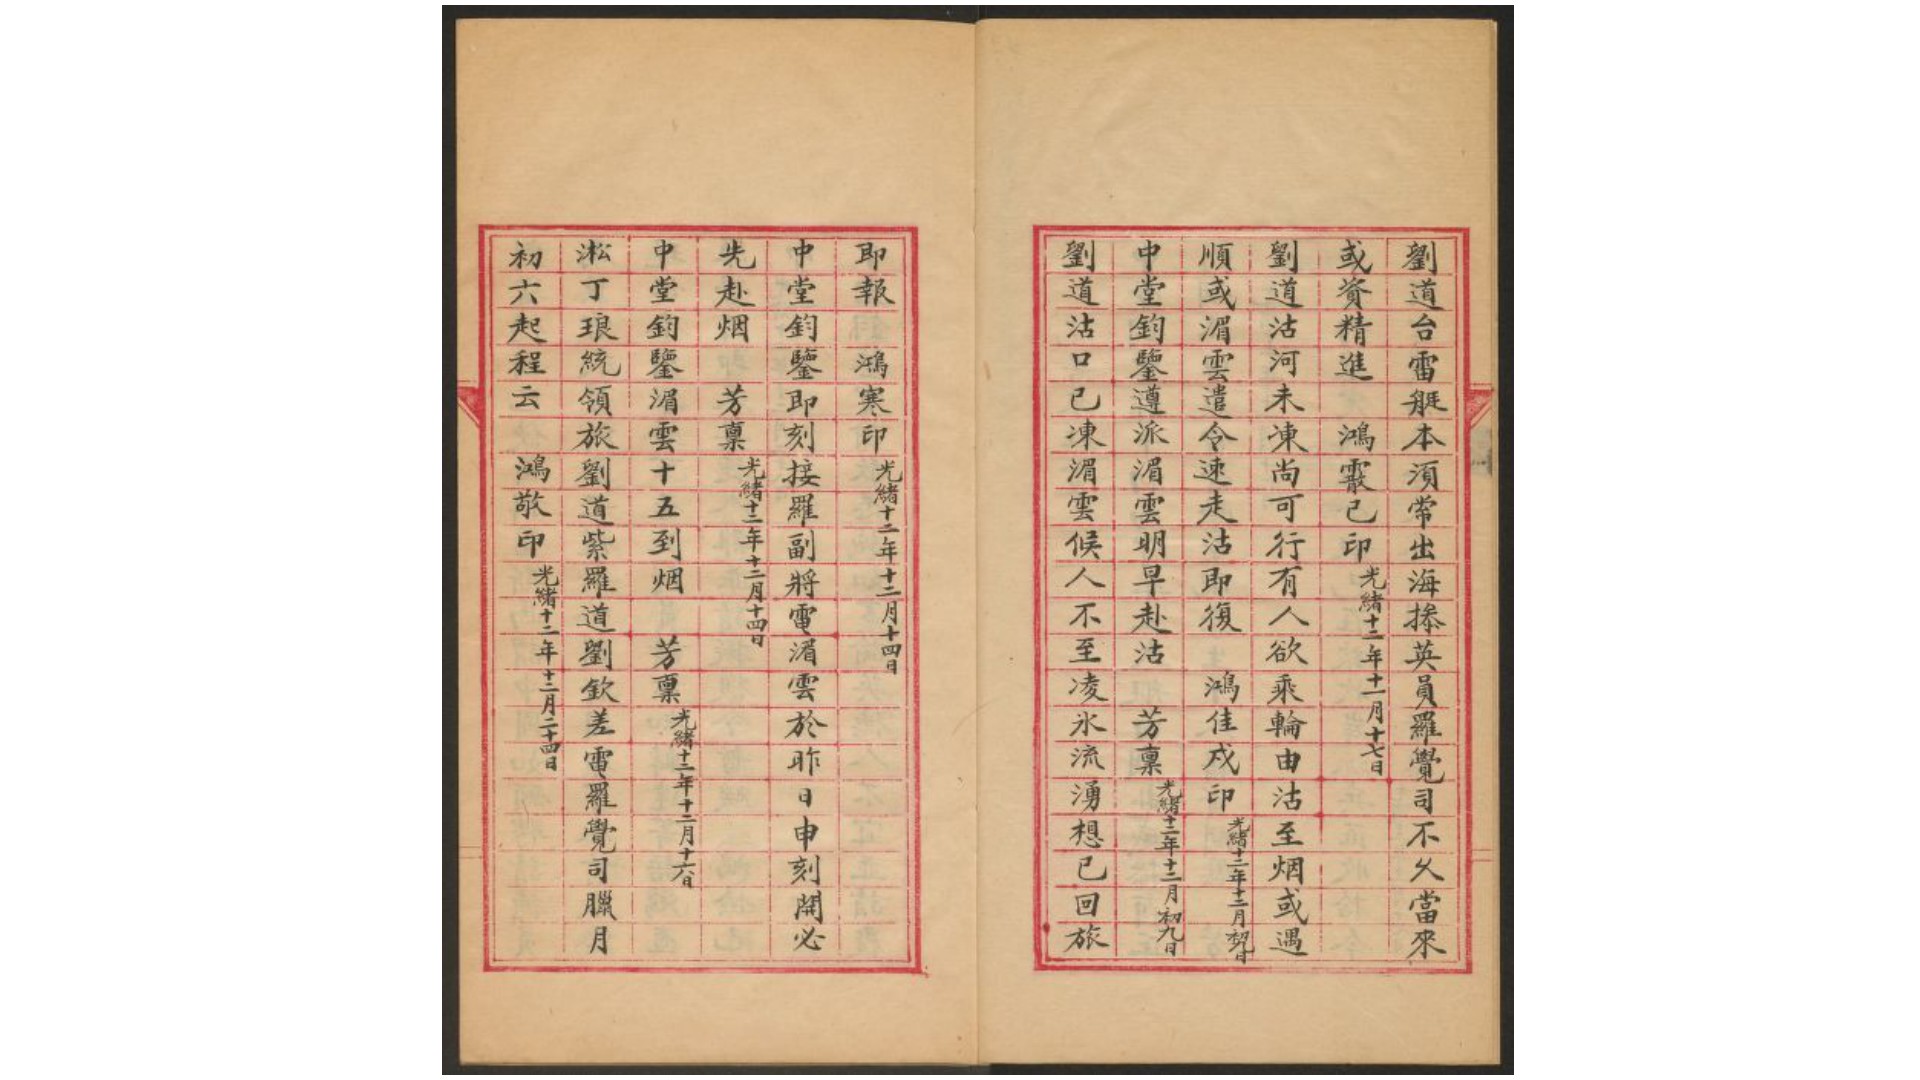 劉道台雷艇本須常出海操英員羅覺司不久當來
或資精進　鴻霰已印光緒十二年十一月十七日
劉道沽河未凍尚可行有人欲乘輪由沽至烟或遇
順或湄雲遣令速走沽即復　鴻佳戍印光緒十二年十二月初九日
中堂鈞鑒遵派湄雲明早赴沽　芳稟光緒十二年十二月初九日
劉道沽口已凍湄雲候人不至凌氷流湧想已回旅
即報　鴻寒印光緒十二年十二月十四日
中堂鈞鑒即刻接羅副將電湄雲於昨日申刻開必
先赴烟　芳稟光緒十二年十二月十四日
中堂鈞鑒湄雲十五到烟　芳稟光緒十二年十二月十六日
淞丁琅統領旅劉道紫羅道劉欽差電羅覺司臘月
初六起程云　鴻敬印光緒十二年十二月二十四日